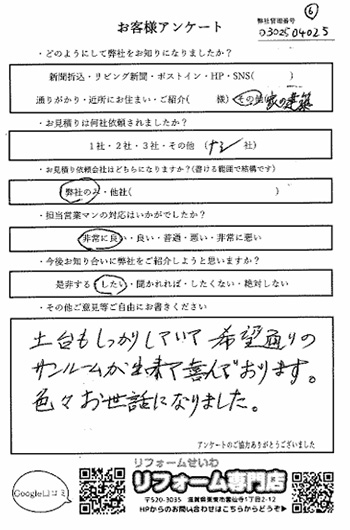 ⑥
お客様アンケート
弊社管理番号
0302504025
・どのようにして弊社をお知りになりましたか？
新聞折込・リビング新聞・ポストイン・HP・SNS(　　　)
通りがかり・近所にお住まい・ご紹介(　　様) その他(家の建築
・お見積りは何社依頼されましたか？
1社・2社・3社・その他 (ナシ 社)
・お見積り依頼会社はどちらになりますか？(書ける範囲で結構です)
弊社のみ・他社(　　　)
・担当営業マンの対応はいかがでしたか？
非常に良い・良い・普通・悪い・非常に悪い
・今後お知り合いに弊社をご紹介しようと思いますか？
是非する・したい・聞かれれば・したくない・絶対しない
・その他ご意見等ご自由にお書きください
土台もしっかりしていて希望通りの
サンルームが出来て喜んでおります。
色々お世話になりました。
アンケートのご協力ありがとうございました
Google口コミ
リフォームせいわ
リフォーム専門店
〒520-3035 滋賀県栗東市霊仙寺1丁目2-12
HPからのお問い合わせはこちらからどうぞ